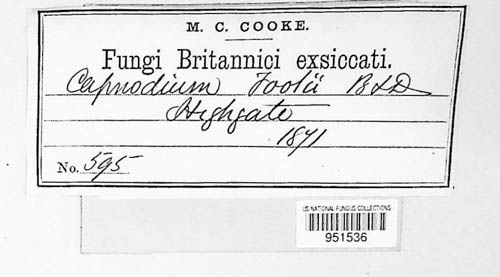 M. C. COOKE.
Fungi Britannici exsiccati.
Capnodium Footii B & D
Highgate
1871
No. 595
US NATIONAL FUNGUS COLLECTIONS
951536